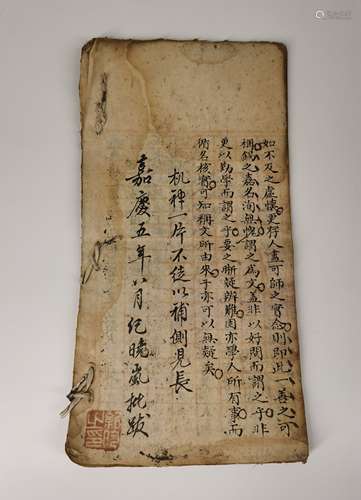 如不及之虛懷更存人盡可師之實念則即此一善之可
稱錫之嘉名洵無愧謂之為文蓋非以好問而謂之乎非
更以勤學而謂之乎要之斷疑辨難固亦學人所有事而
循名核實可知稱文所由來乎亦可以無疑矣
机神一片不徒以補側見長
嘉慶五年八月紀曉嵐批跋